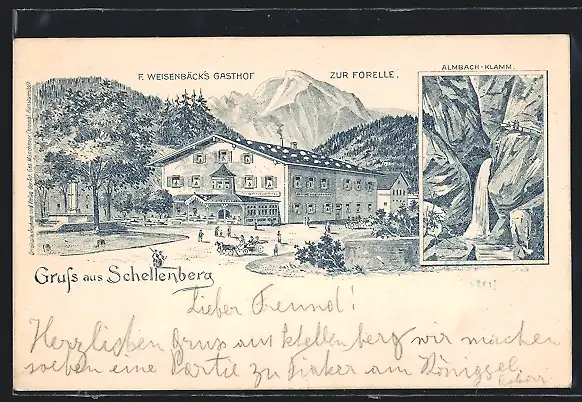 F. WEISENBÄCK'S GASTHOF ZUR FORELLE.
ALMBACH-KLAMM.
Gruſs aus Schellenberg
Lieber Freund!
Herzlichen Gruss aus Schellenberg wir machen
soeben eine Partie zu Fiaker am Königssee